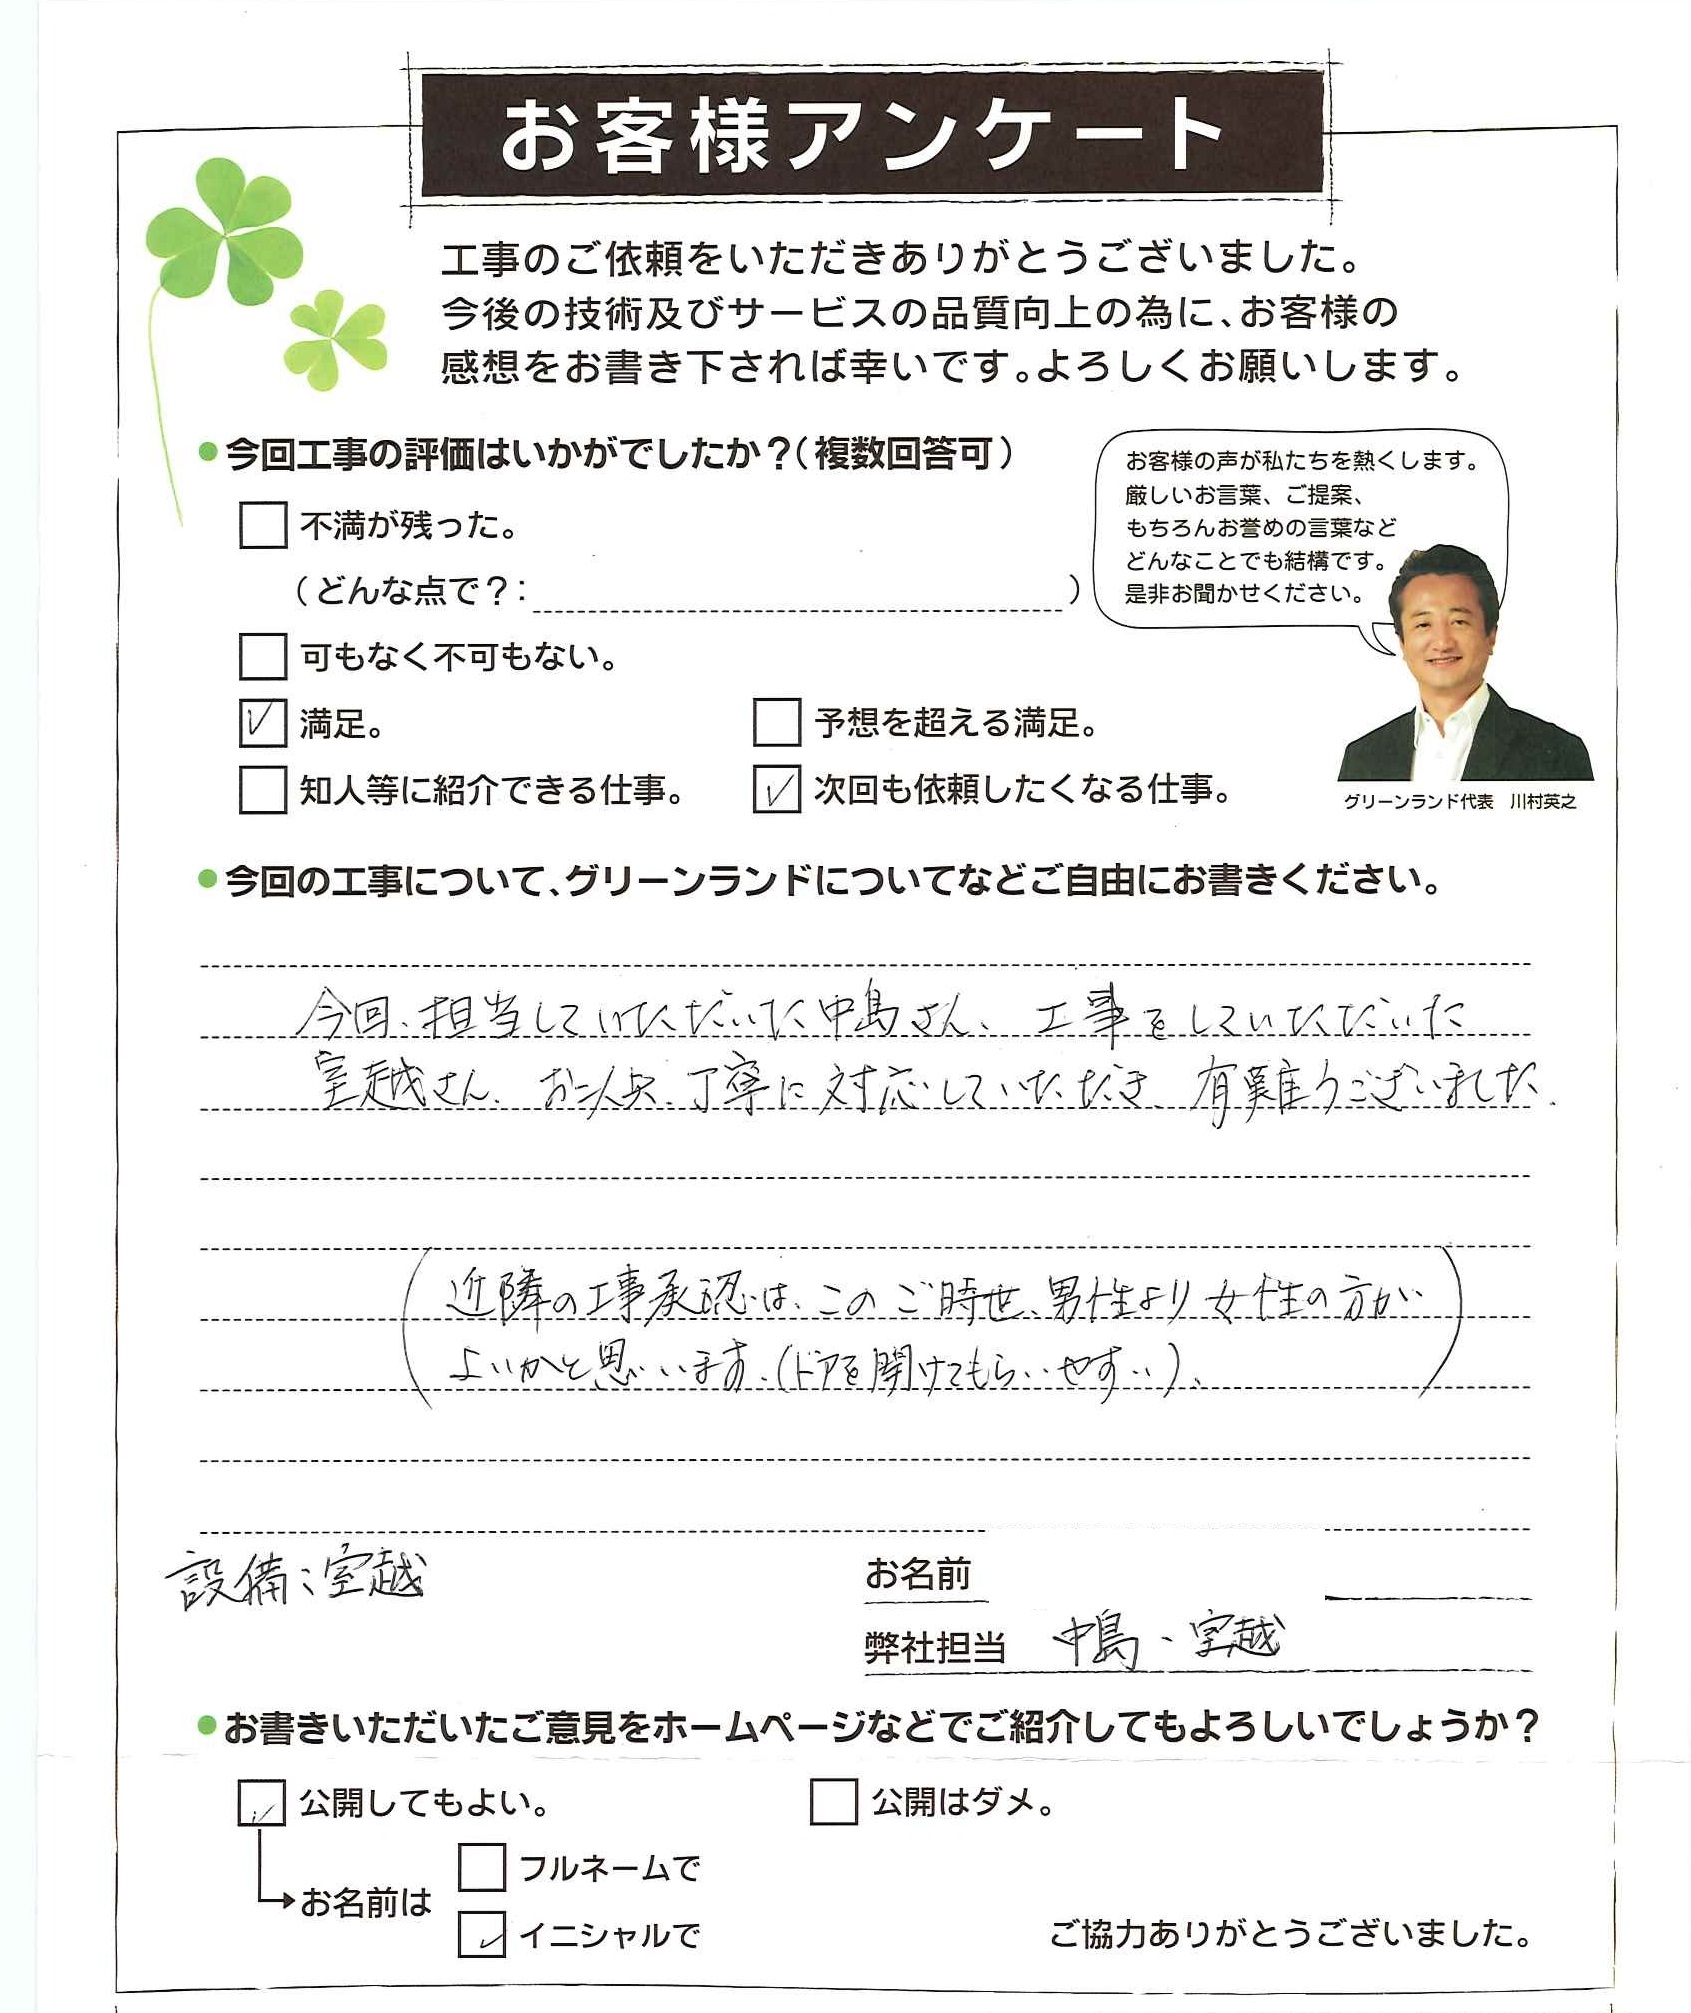 お客様アンケート
工事のご依頼をいただきありがとうございました。
今後の技術及びサービスの品質向上の為に、お客様の
感想をお書き下されば幸いです。よろしくお願いします。
●今回工事の評価はいかがでしたか？（複数回答可）
お客様の声が私たちを熱くします。
厳しいお言葉、ご提案、
もちろんお誉めの言葉など
どんなことでも結構です。
是非お聞かせください。
不満が残った。
（どんな点で？：　）
可もなく不可もない。
満足。
予想を超える満足。
知人等に紹介できる仕事。
次回も依頼したくなる仕事。
グリーンランド代表　川村英之
●今回の工事について、グリーンランドについてなどご自由にお書きください。
今回、担当していただいた中島さん、工事をしていただいた
室越さん、お二人共、丁寧に対応していただき、有難うございました.
（近隣の工事承認は、このご時世、男性より女性の方が
よいかと思います、（ドアを開けてもらいやすい）、）
設備：室越
お名前
弊社担当　中島、室越
●お書きいただいたご意見をホームページなどでご紹介してもよろしいでしょうか？
公開してもよい。
公開はダメ。
フルネームで
お名前は
イニシャルで
ご協力ありがとうございました。